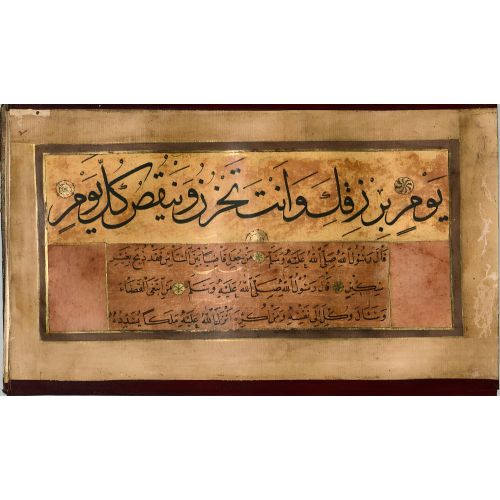 يَوْمٍ بِرِزْقِكَ وَاَنْتَ تَحْزَنُ وَيَنْقُصُ كُلَّ يَوْمٍ
قَالَ رَسُولُ اللهِ صَلَّى اللهُ عَلَيْهِ وَسَلَّمَ مَنْ جُعِلَ قَاضِيًا بَيْنَ النَّاسِ فَقَدْ ذُبِحَ بِغَيْرِ
سِكِّينٍ قَالَ رَسُولُ اللهِ صَلَّى اللهُ عَلَيْهِ وَسَلَّمَ مَنِ ابْتَغَى الْقَضَاءَ
وَسَاَلَ وُكِلَ اِلَى نَفْسِهِ وَمَنْ اُكْرِهَ اَنْزَلَ اللهُ عَلَيْهِ مَلَكًا يُسَدِّدُهُ